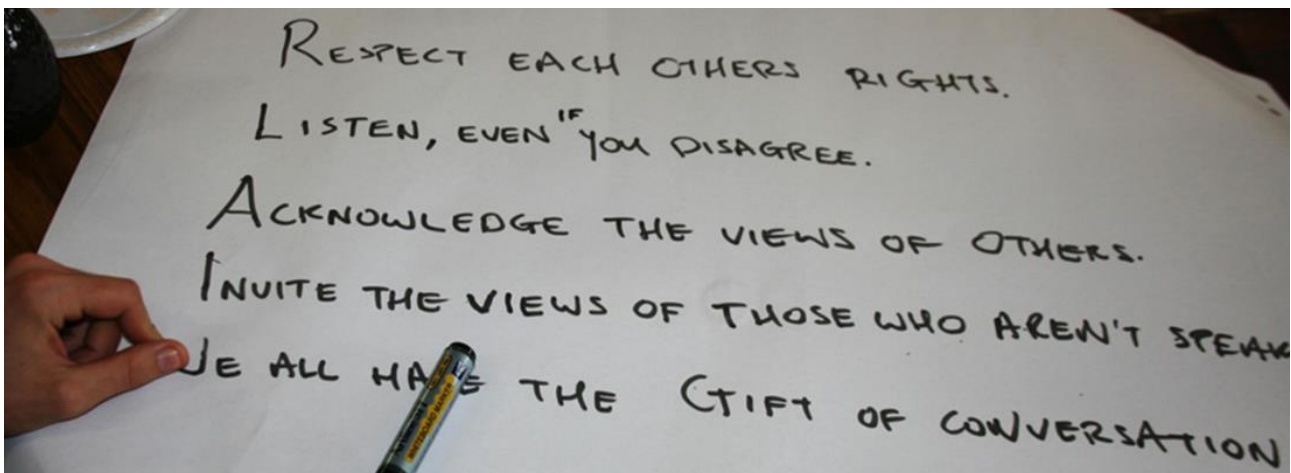 RESPECT EACH OTHERS RIGHTS.
LISTEN, EVEN IF YOU DISAGREE.
ACKNOWLEDGE THE VIEWS OF OTHERS.
INVITE THE VIEWS OF THOSE WHO AREN'T SPEAK
WE ALL HAVE THE GIFT OF CONVERSATION
WHITEBOARD MARKER